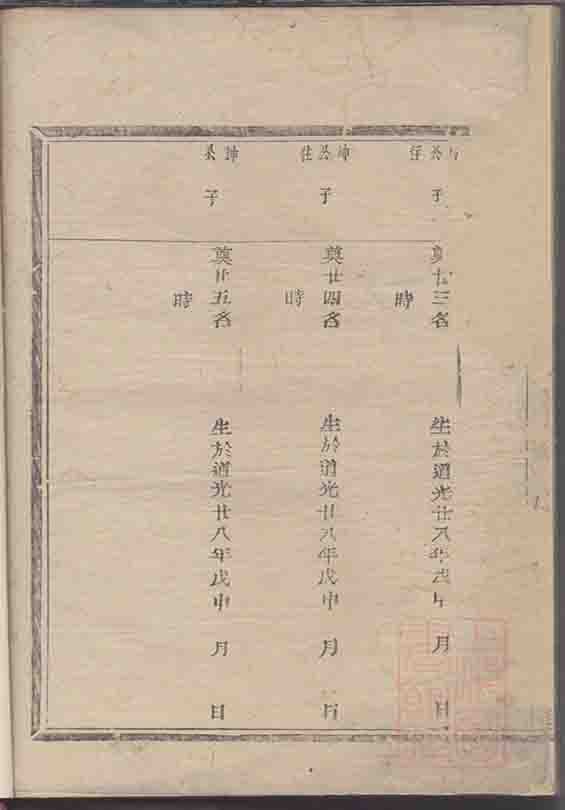 公仔
子
奠廿三名
時
生於道光廿八年戊申 月 日
坤公住
子
奠廿四名
時
生於道光廿八年戊申 月 日
坤
子
奠廿五名
時
生於道光廿八年戊申 月 日